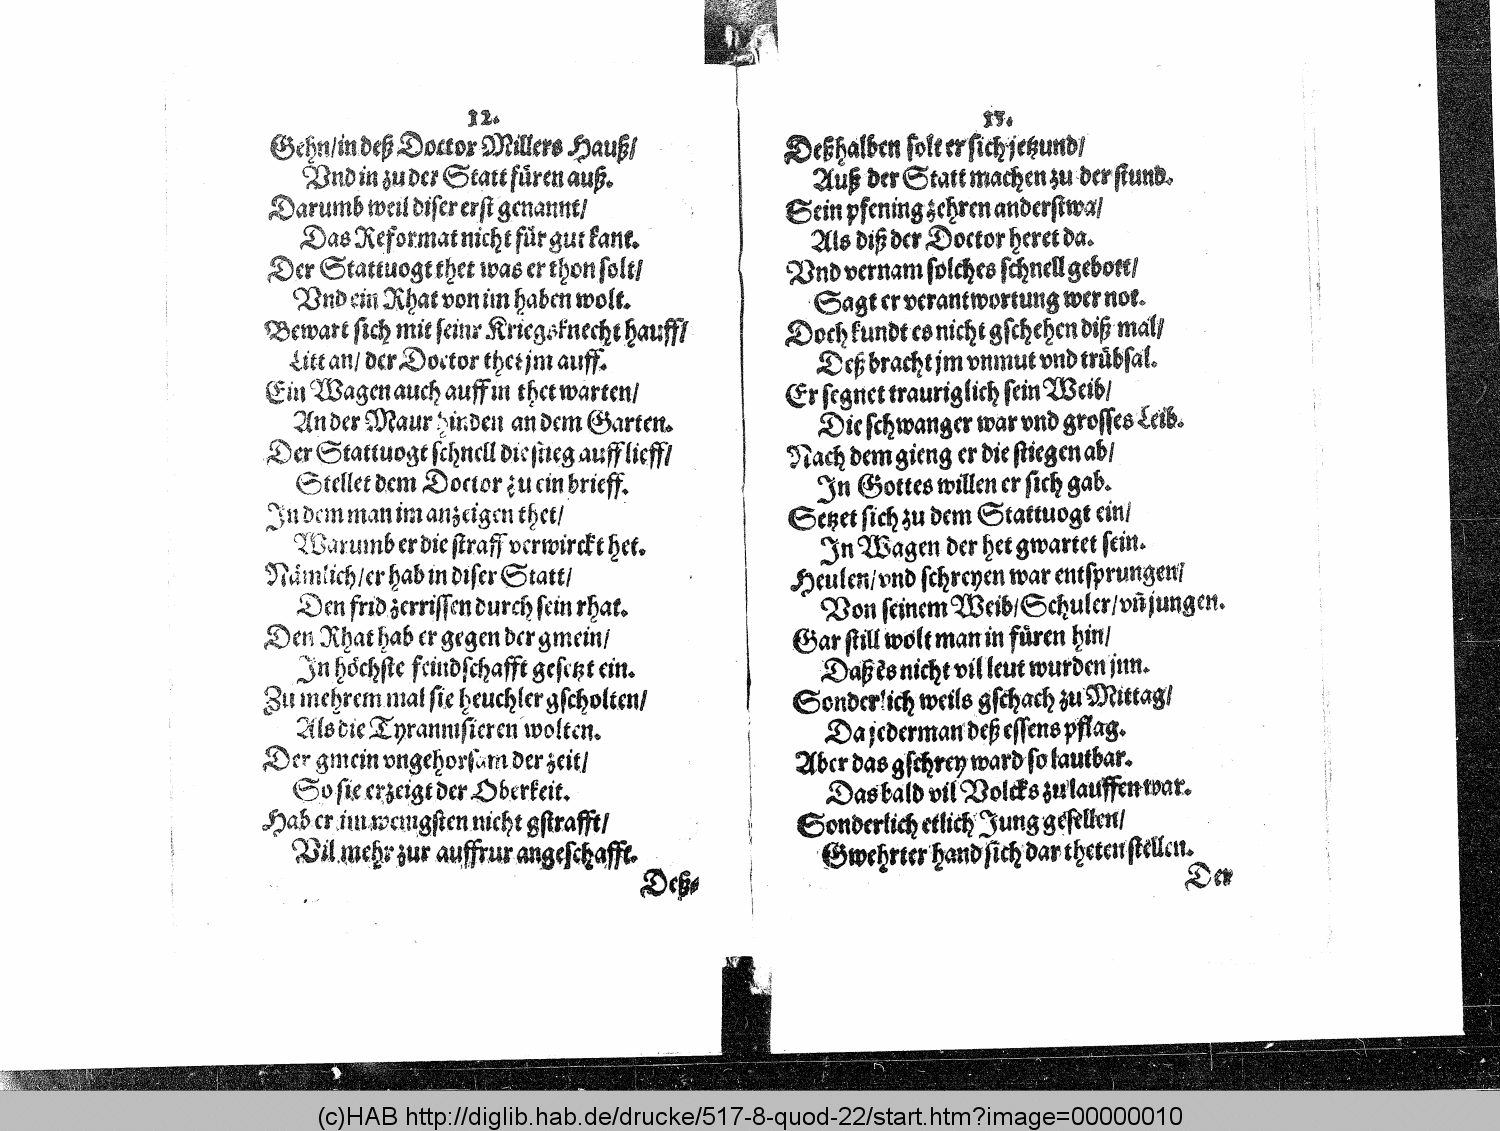 12.
Gehn/in deß Doctor Millers Hauß/
Vnd in zu der Statt füren auß.
Darumb weil diser erst genannt/
Das Reformat nicht für gut kant.
Der Stattuogt thet was er thon solt/
Vnd ein Rhat von im haben wolt.
Bewart sich mit seinr Kriegsknecht hauff/
Litt an/ der Doctor thet jm auff.
Ein Wagen auch auff in thet warten/
An der Maur hinden an dem Garten.
Der Stattuogt schnell die stieg auff lieff/
Stellet dem Doctor zu ein brieff.
In dem man im anzeigen thet/
Warumb er die straff verwirckt het.
Nämlich/er hab in diser Statt/
Den frid zerrissen durch sein rhat.
Den Rhat hab er gegen der gmein/
In höchste feindschafft gesetzt ein.
Zu mehrem mal sie heuchler gscholten/
Als die Tyrannisieren wolten.
Der gmein vngehorsam der zeit/
So sie erzeigt der Oberkeit.
Hab er im wenigsten nicht gstrafft/
Vil mehr zur auffrur angeschafft.
Deß-
13.
Deßhalben solt er sich jetzund/
Auß der Statt machen zu der stund.
Sein pfening zehren anderstwa/
Als diß der Doctor heret da.
Vnd vernam solches schnell gebott/
Sagt er verantwortung wer not.
Doch kundt es nicht gschehen diß mal/
Deß bracht jm vnmut vnd trübsal.
Er segnet trauriglich sein Weib/
Die schwanger war vnd grosses Leib.
Nach dem gieng er die stiegen ab/
In Gottes willen er sich gab.
Setzet sich zu dem Stattuogt ein/
In Wagen der het gwartet sein.
Heulen/vnd schreyen war entsprungen/
Von seinem Weib/Schuler/vñ jungen.
Gar still wolt man in füren hin/
Daß es nicht vil leut wurden jnn.
Sonderlich weils gschach zu Mittag/
Da jederman deß essens pflag.
Aber das gschrey ward so lautbar.
Das bald vil Volcks zulauffen war.
Sonderlich etlich Jung gesellen/
Gwehrter hand sich dar theten stellen.
Der
(c)HAB http://diglib.hab.de/drucke/517-8-quod-22/start.htm?image=00000010